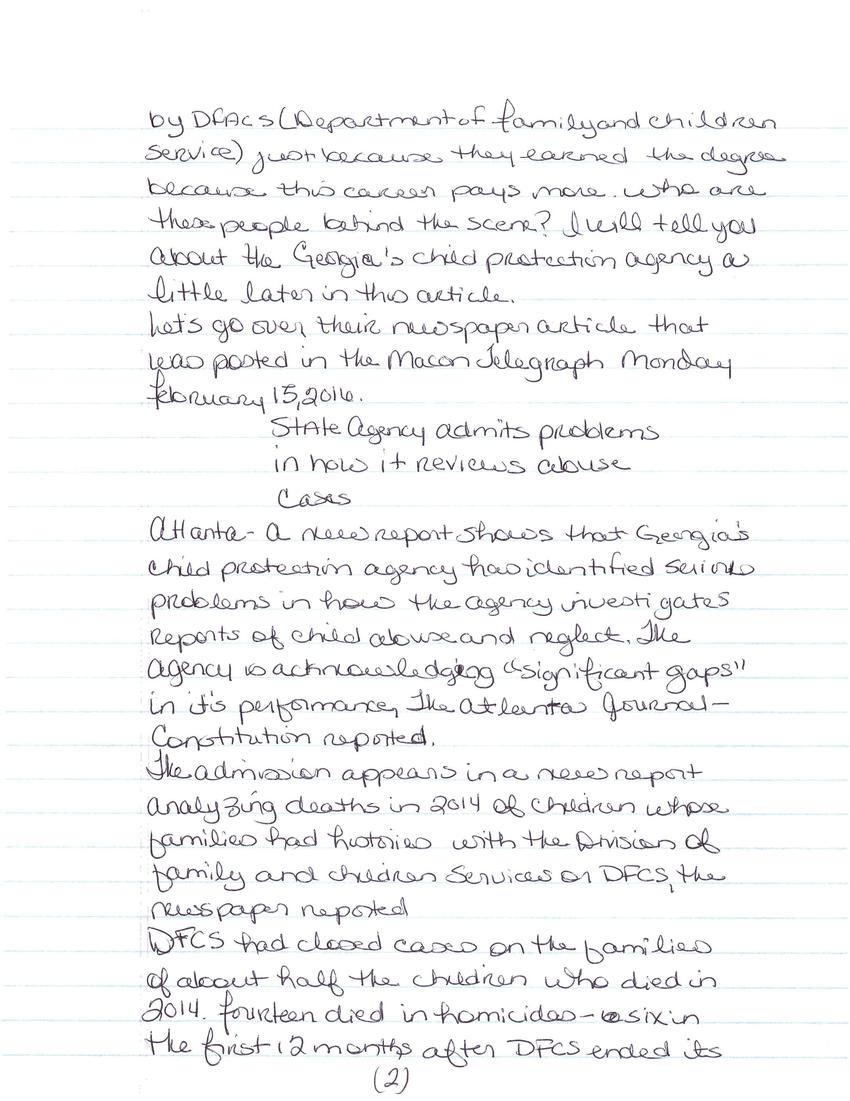 by DFACS (Department of family and children
Service) just because they earned the degree
because this career pays more. Who are
these people behind the scene? I will tell you
about the Georgia's child protection agency a
little later in this article.
Let's go over their newspaper article that
was posted in the Macon Telegraph Monday
february 15, 2016.
State Agency admits problems
in how it reviews abuse
Cases
Atlanta - A new report shows that Georgia's
child protection agency has identified serious
problems in how the agency investigates
reports of child abuse and neglect. The
agency is acknowledging "significant gaps"
in it's performance, The Atlanta Journal-
Constitution reported.
The admission appears in a new report
analyzing deaths in 2014 of children whose
families had histories with the Division of
family and children Services or DFCS, the
newspaper reported
DFCS had closed cases on the families
of about half the children who died in
2014. fourteen died in homicides - six in
the first 12 months after DFCS ended its
(2)